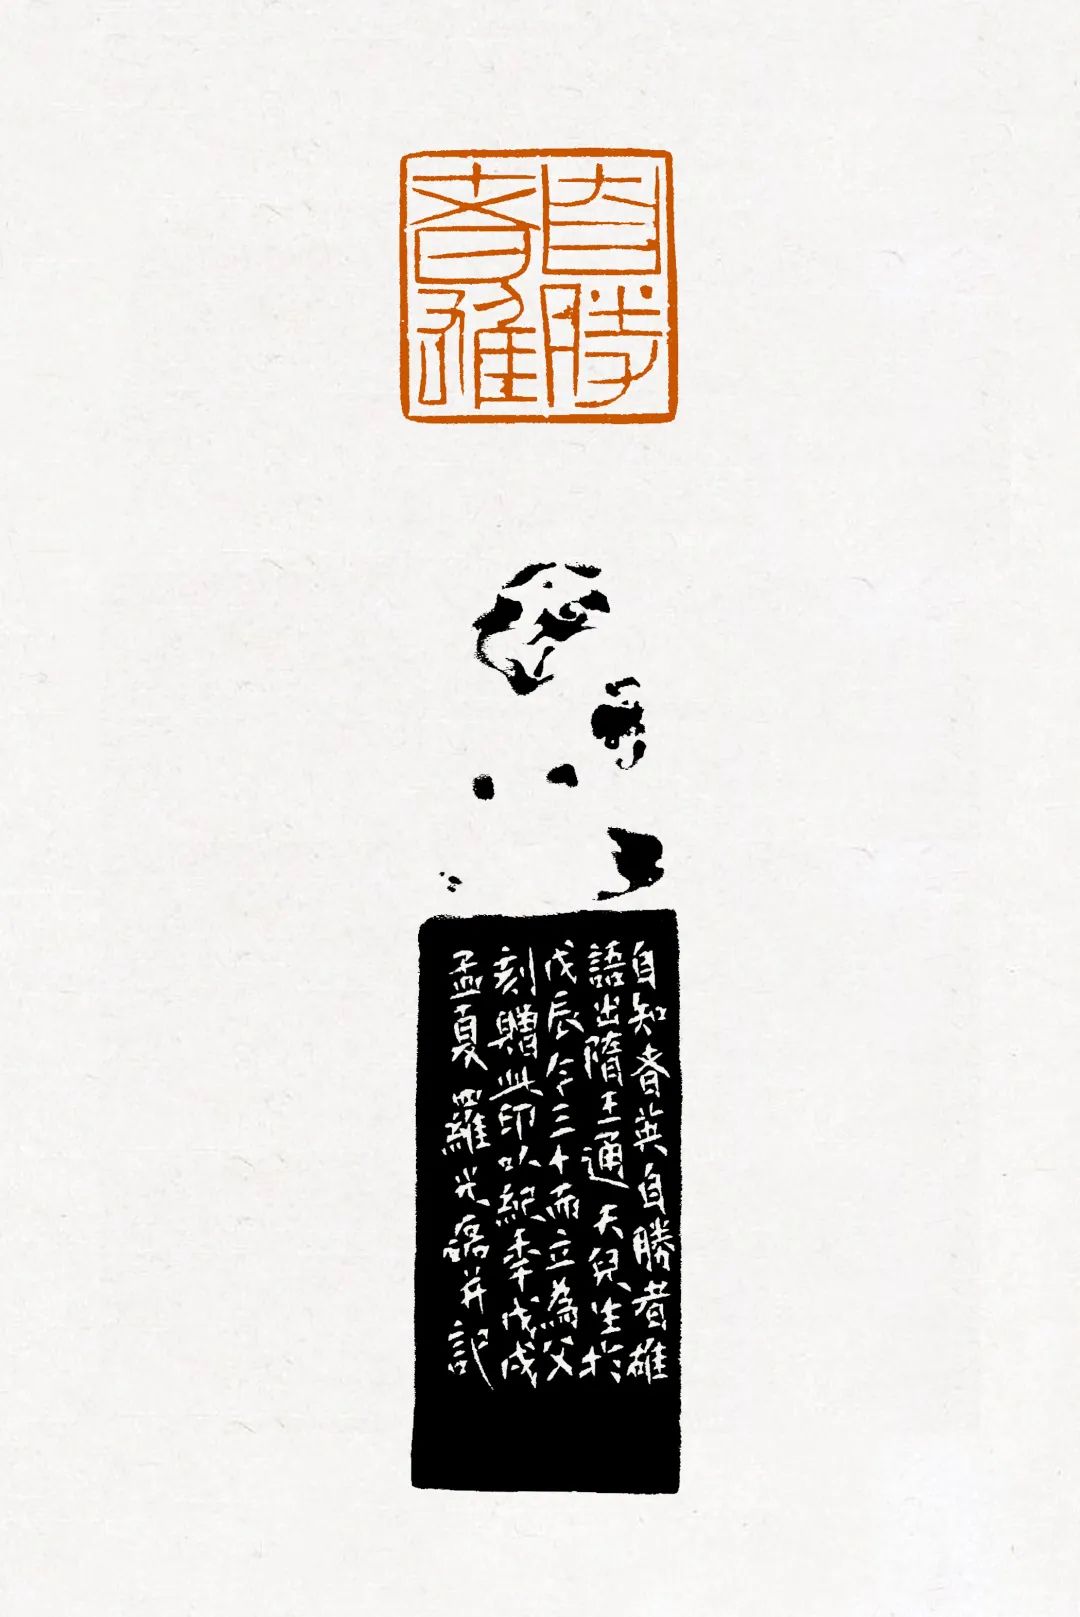 自勝
者雄
自知者英自勝者雄
語出隋王通天兒生於
戊辰今三十而立為父
刻贈此印以紀季戊戌
孟夏羅光磊并記